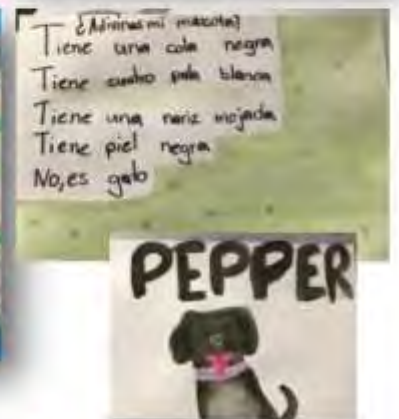 ¿Adivinas mi mascota?
Tiene una cola negra
Tiene cuatro pata blanca
Tiene una nariz mojada
Tiene piel negra
No, es gato
PEPPER